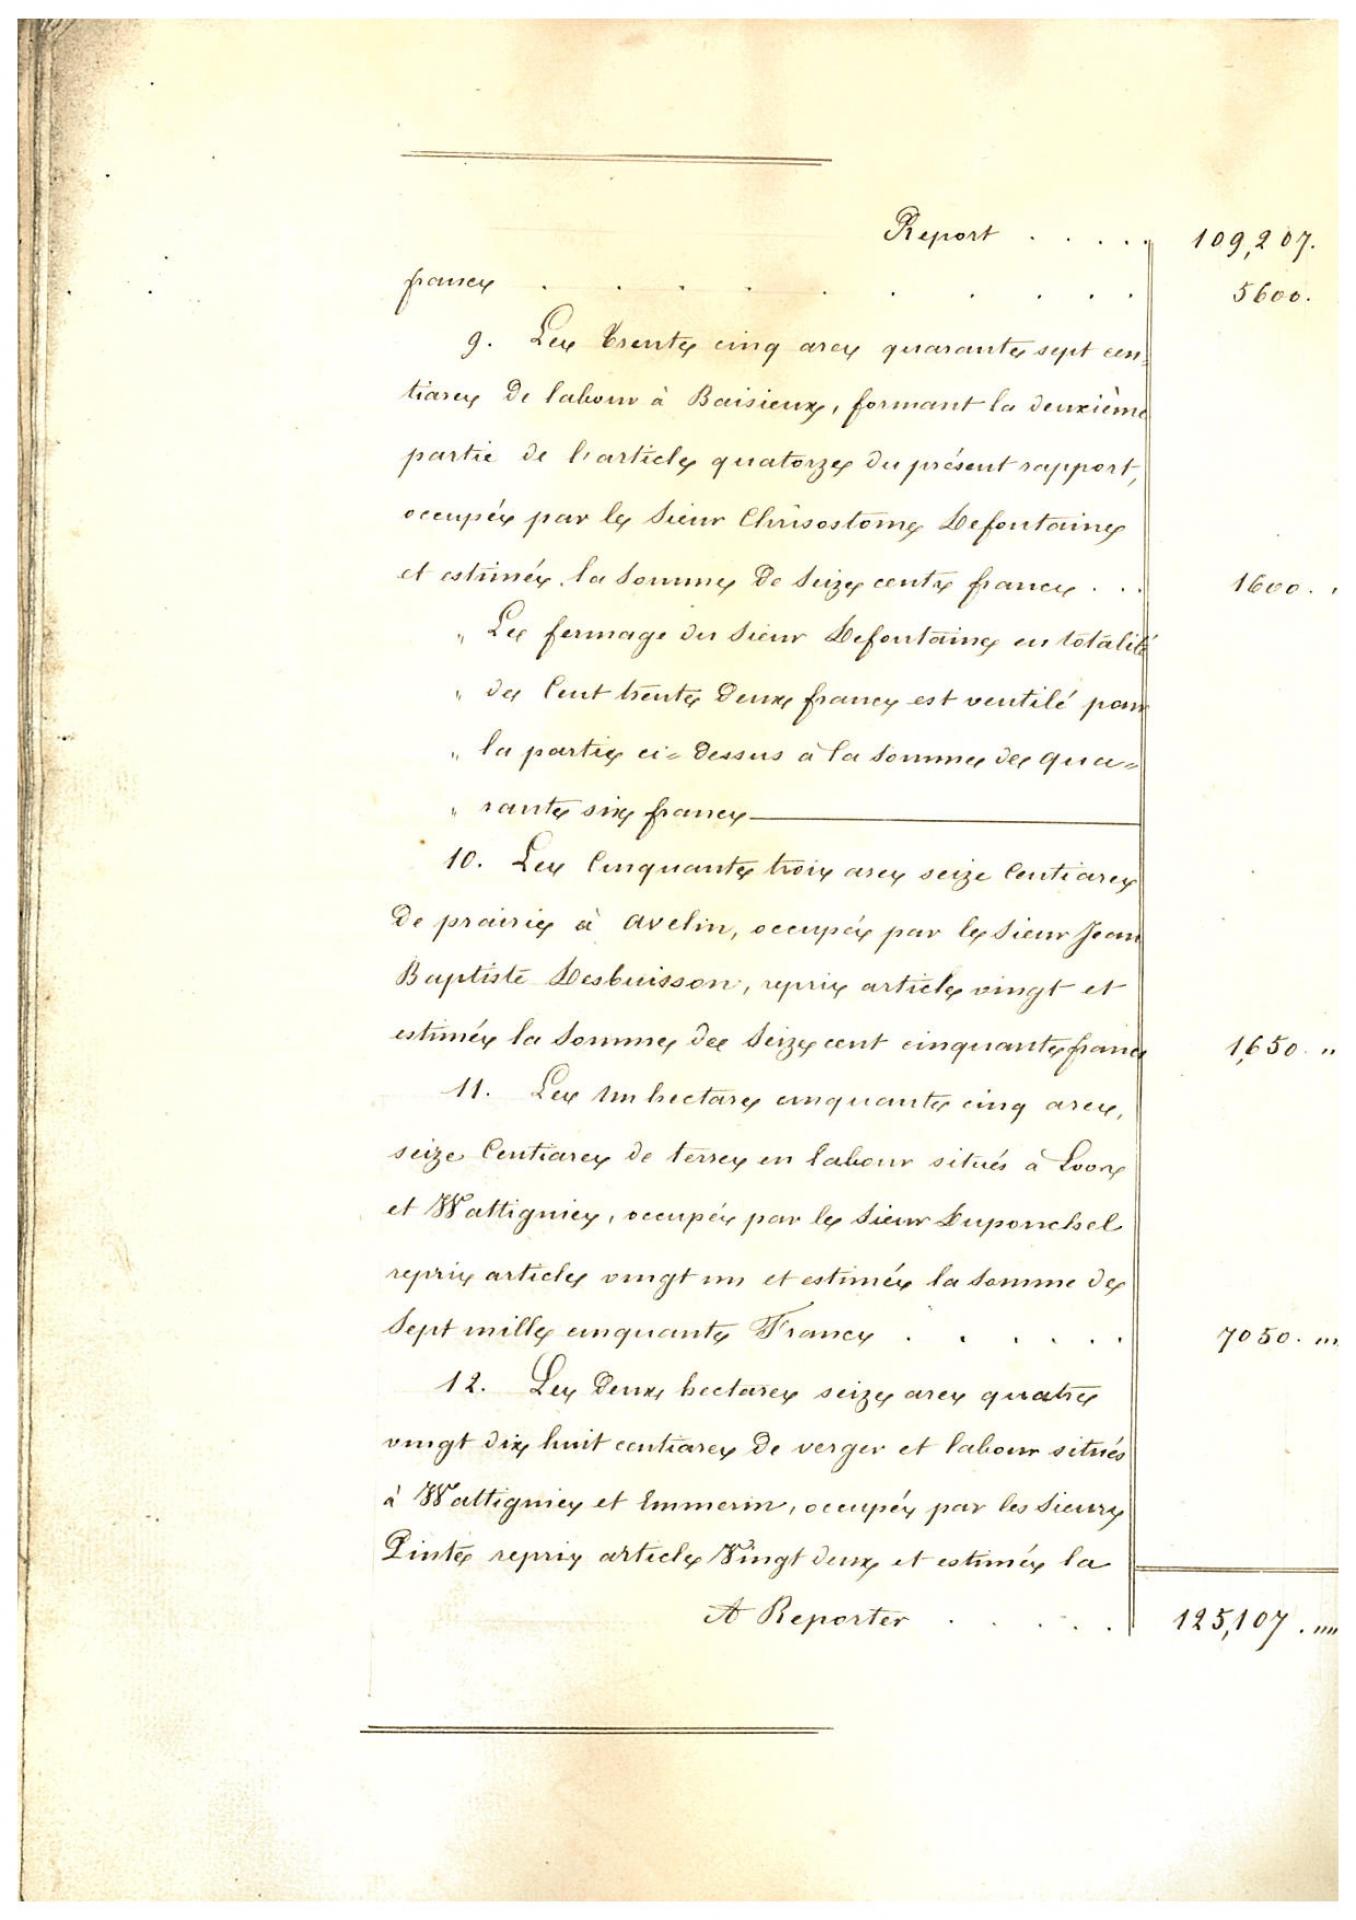 Report . . . . . 109,207.
francs . . . . . . . . . . 5600.
9. Les trente cinq ares quarante sept cen=
tiares de labour à Baisieux, formant la deuxième
partie de l'article quatorze du présent rapport,
occupés par le Sieur Chrisostome Defontaine
et estimés la somme de Seize cents francs . . . 1600. "
" Le fermage du Sieur Defontaine en totalité
" de Cent trente deux francs est ventilé pour
" la partie ci=dessus à la somme de qua=
" rante six francs
10. Les Cinquante trois ares seize Centiares
de prairie à Avelin, occupés par le Sieur Jean
Baptiste Desbuisson, repris article vingt et
estimés la somme de Seize cent cinquante francs 1,650. "
11. Les Un hectare cinquante cinq ares,
seize Centiares de terre en labour situés à Loos
et Wattignies, occupés par le Sieur Duponchel
repris article vingt un et estimés la somme de
Sept mille cinquante Francs . . . . . 7050. "'
12. Les Deux hectares seize ares quatre
vingt dix huit centiares de verger et labour situés
à Wattignies et Emmerin, occupés par les Sieurs
Pinte repris article Vingt deux et estimés la
A Reporter . . . . . 125,107. ""